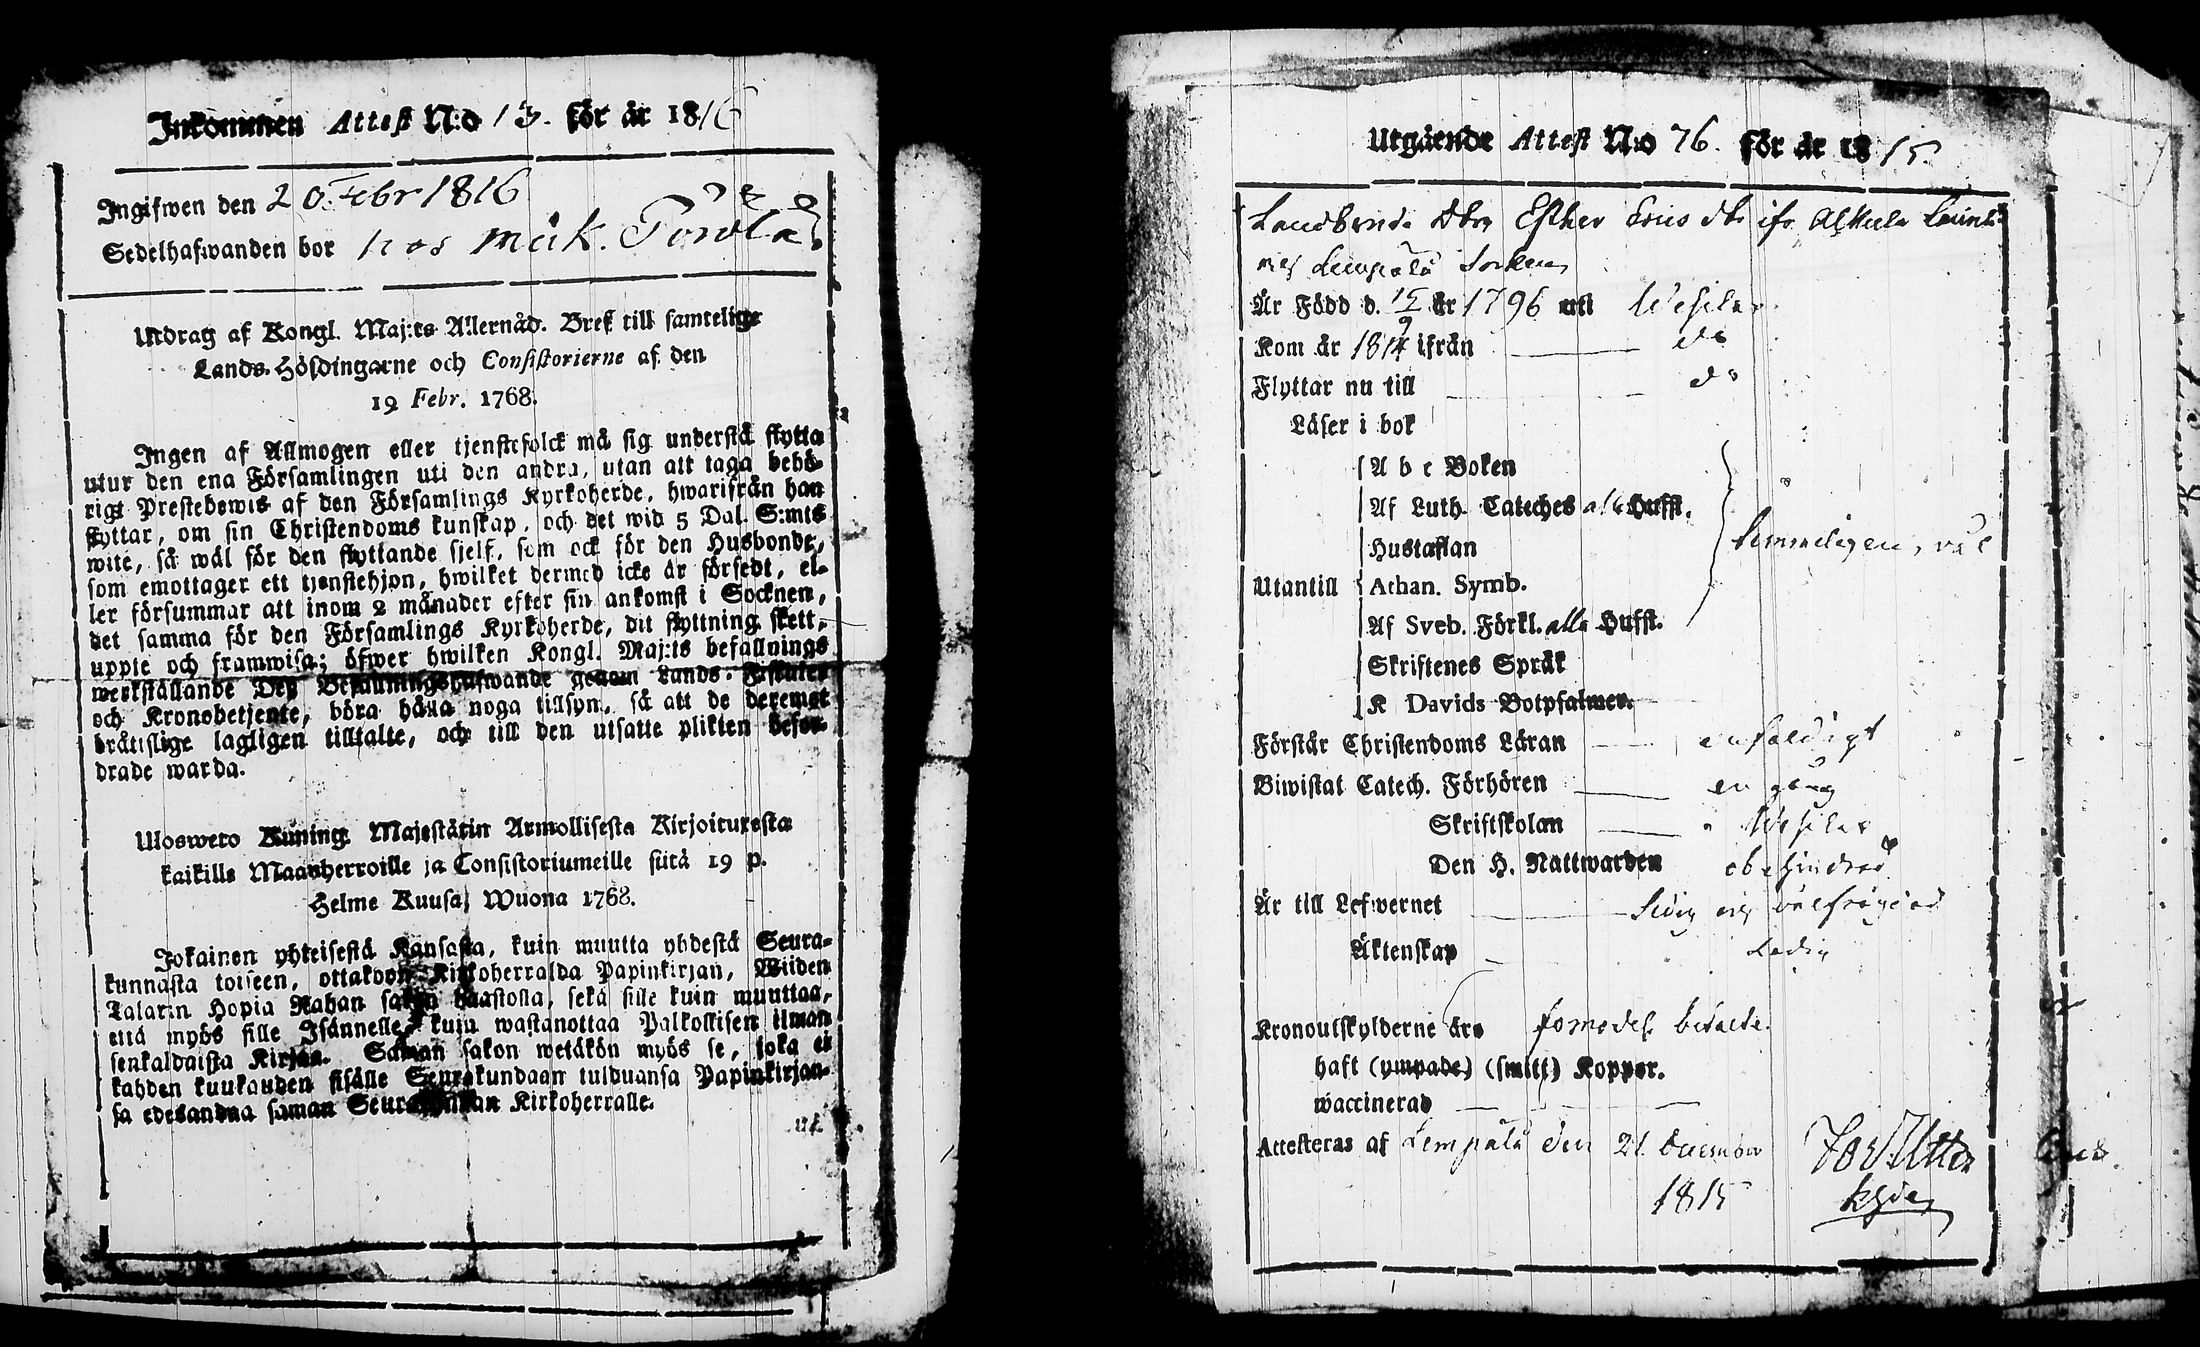 Inkommen Attest N:o 13. för år 1816
Ingifwen den 20 Febr 1816
Sedelhafwanden bor hos
Utdrag af Kongl. Maj:ts Allernåd. Bref till samtelige
Lands-Höfdingarne och Consistorierne af den
19 Febr. 1768.
Ingen af Allmogen eller tjenstefolck må sig understå flytta
utur den ena Församlingen uti den andra, utan att taga behö-
rigt Prestebewis af den Församlings Kyrkoherde, hwarifrån han
flyttar, om sin Christendoms kunskap, och det wid 5 Dal. S:mts
wite, så wäl för den flyttande sjelf, som ock för den Husbonde,
som emottager ett tjenstehjon, hwilket dermed icke är försedt, el-
ler försummar att inom 2 månader efter sin ankomst i Socknen,
det samma för den Församlings Kyrkoherde, dit flyttning skett,
uppte och framwisa; öfwer hwilken Kongl. Maj:ts befallnings
werkställande Dess Befallningshafwande genom Lands-Fiskaler
och Kronobetjente, böra hålla noga tillsyn, så att de deremot
bråtislige lagligen tilltalte, och till den utsatte plikten befor-
drade warda.
Ulosweto Kuning. Majestätin Armollisesta Kirjoituxesta
kaikille Maanherroille ja Consistoriumeille siitä 19 p.
Helme Kuusa, Wuona 1768.
Jokainen yhteisestä Kansasta, kuin muutta yhdestä Seura-
kunnasta toiseen, ottakoon Kirkoherralda Papinkirjan, Wiiden
Talarin Hopia Rahan sakon haastolla, sekä sille kuin muuttaa,
että myös sille Isännelle, kuin wastanottaa Palkollisen ilman
senkaldaista Kirjaa. Saman sakon wetäkön myös se, joka ei
kahden kuukauden sisälle Seurakundaan tulduansa Papinkirjan-
sa edesandna saman Seurakunnan Kirkoherralle.
Utgående Attest N:o 76. för år 1815
Esther
Lempälä Socken
Är Född d. 15/9 år 1796 uti Wesilax
Kom år 1814 ifrån do
Flyttar nu till do
Läser i bok
A b c Boken
Af Luth. Cateches alla Hufst.
Hustaflan
Utantill Athan. Symb.
Af Sveb. Förkl. alla Hufst.
Skriftenes Språk
K Davids Botpsalmer.
temmeligen, väl
Förstår Christendoms Läran enfaldigt
Biwistat Catech. Förhören en gång
Skriftskolan Wesilax
Den H. Nattwarden obehindrad
Är till Lefwernet Sedig och välfrägdad
Äktenskap Ledig
Kronoutskylderne äro betalte.
haft (ympade) (smitt) Koppor.
waccinerad
Attesteras af Lempälä den 21 December
1815